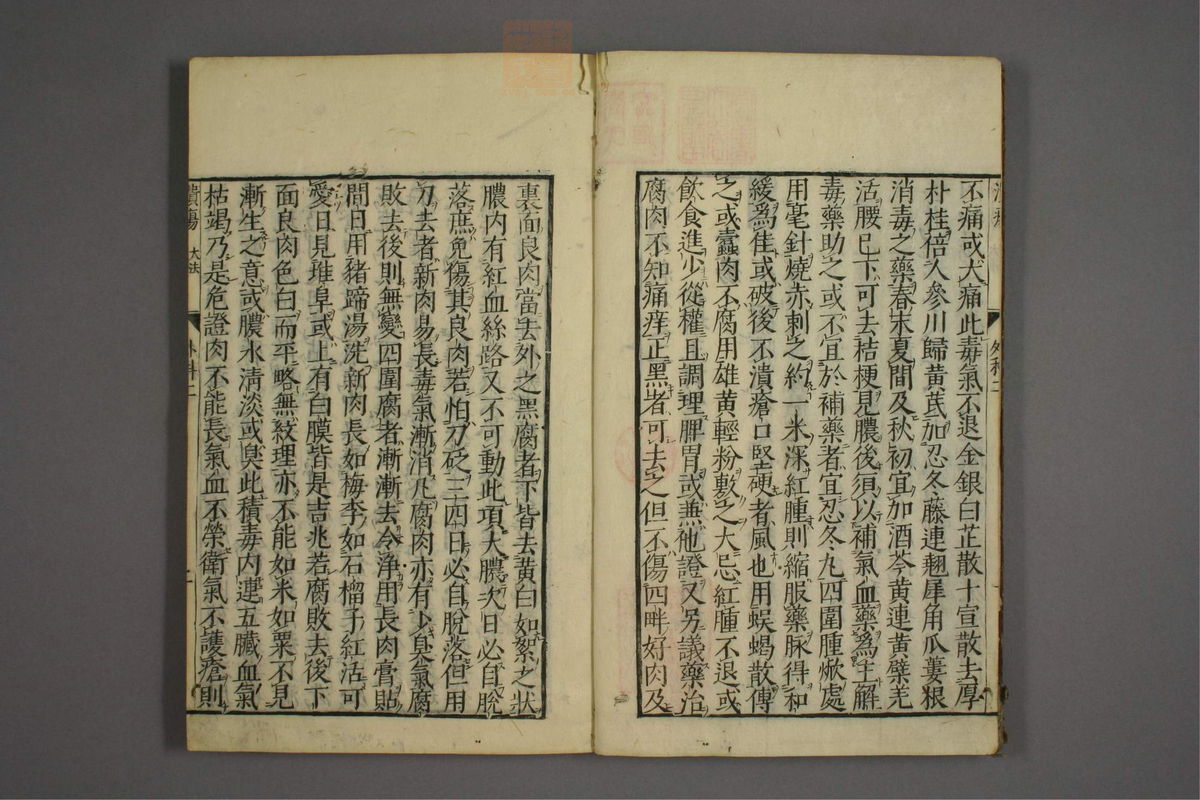 不痛或大痛此毒氣不退金銀白芷散十宣散去厚
朴桂倍人參川歸黃芪加忍冬藤連翹犀角瓜蔞根
消毒之藥春末夏間及秋初宜加酒芩黃連黃蘗羌
活腰已下可去桔梗見膿後須以補氣血藥爲主解
毒藥助之或不宜於補藥者宜忍冬丸四圍腫焮處
用毫針燒赤刺之約一米深紅腫則縮服藥脉得和
緩爲佳或破後不潰瘡口堅硬者風也用蜈蝎散傳
之或蠹肉不腐用雄黃輕粉敷之大忌紅腫不退或
飲食進少從權且調理脾胃或兼他證又另議藥治
腐肉不知痛痒正黑者可去之但不傷四畔好肉及
裏面良肉當去外之黑腐者下皆去黃白如絮之狀
膿内有紅血絲路又不可動此項大膿次日必自脫
落庶免傷其良肉若怕刀砭三四日必自脫落但用
刀去者新肉易長毒氣漸消凡腐肉亦有少臭氣腐
敗去後則無變四圍腐者漸漸去令淨用長肉膏貼
間日用豬蹄湯洗新肉長如梅李如石榴子紅活可
愛日見堆阜或上有白膜皆是吉兆若腐敗去後下
面良肉色白而平略無紋理亦不能如米如粟不見
漸生之意或膿水清淡或臭此積毒内連五臟血氣
枯竭乃是危證肉不能長氣血不榮衛氣不護瘡則
潰瘍 大法 外科二